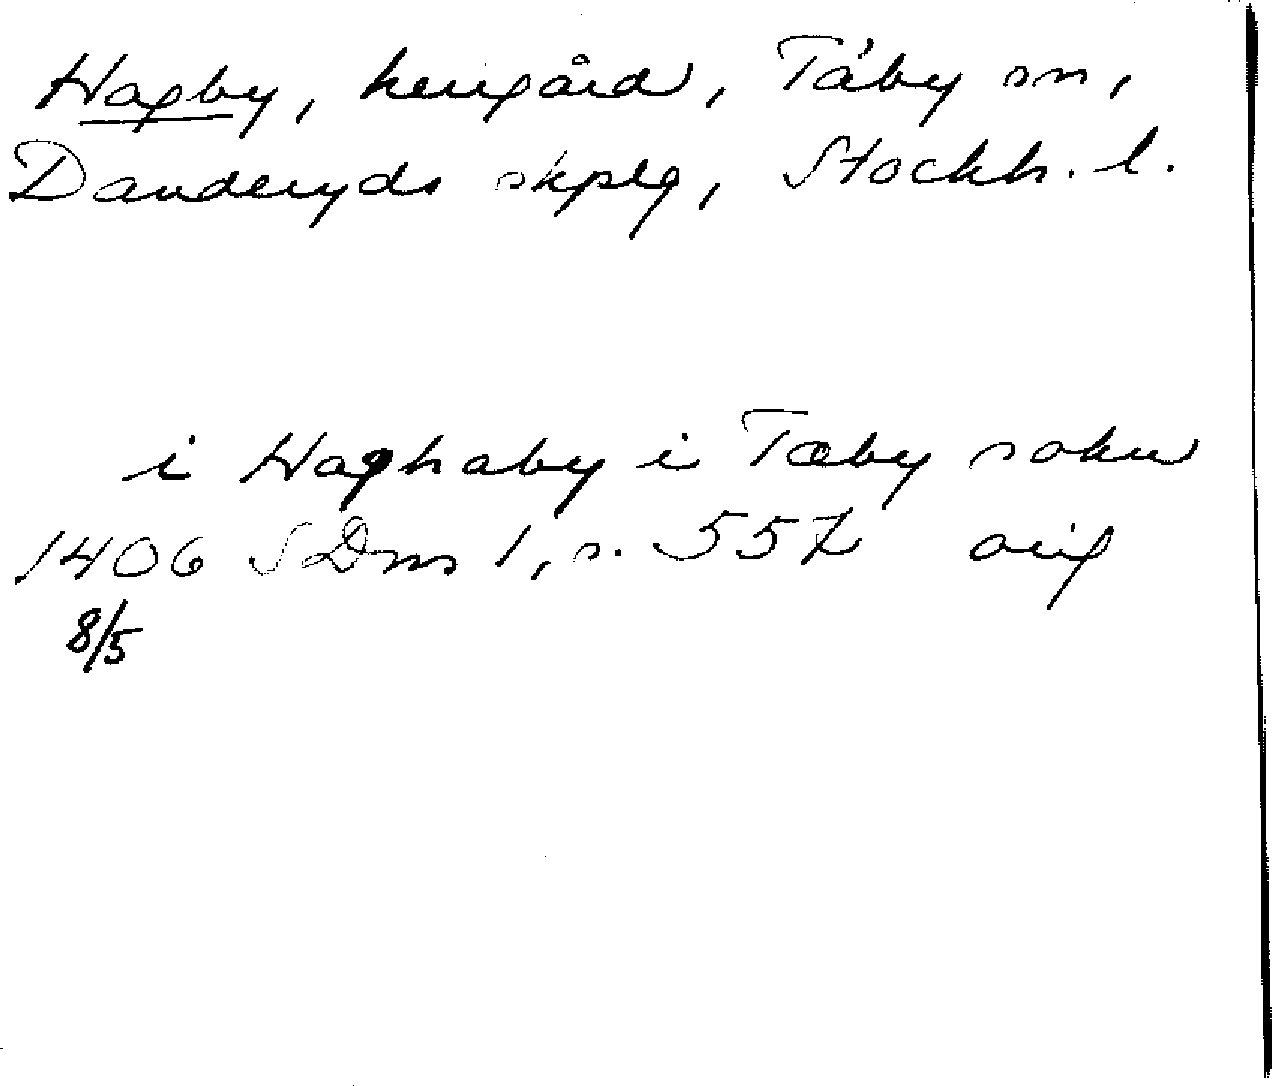 Hagby, herrgård, Täby sn,
Danderyds skplg, Stockh. l.
i Haghaby i Tæby sokn
1406 SDns 1, s. 557 orig
8/5